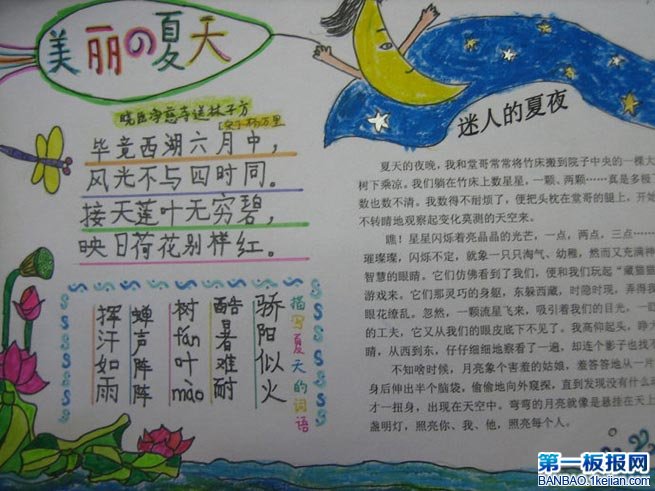 美丽の夏天
晓出净慈寺送林子方
[宋]·杨万里
毕竟西湖六月中，
风光不与四时同。
接天莲叶无穷碧，
映日荷花别样红。
描写夏天的词语
骄阳似火
酷暑难耐
树fān叶mào
蝉声阵阵
挥汗如雨
迷人的夏夜
夏天的夜晚，我和堂哥常常将竹床搬到院子中央的一棵大
树下乘凉。我们躺在竹床上数星星，一颗、两颗……真是多极了
数也数不清。我数得不耐烦了，便把头枕在堂哥的腿上，开始
不转睛地观察起变化莫测的天空来。
瞧！星星闪烁着亮晶晶的光芒，一点，两点，三点……
璀璨璨，闪烁不定，就象一只只淘气、幼稚，然而又充满神
智慧的眼睛。它们仿佛看到了我们，便和我们玩起“藏猫猫
游戏来。它们那灵巧的身躯，东躲西藏，时隐时现，弄得我
眼花缭乱。忽然，一颗流星飞来，吸引着我们的目光，一眨
的工夫，它又从我们的眼皮底下不见了。我高仰起头，睁大
睛，从西到东，仔仔细细地察看了一遍，却连个影子也找不
不知啥时候，月亮象个害羞的姑娘，羞答答地从一片
身后伸出半个脑袋，偷偷地向外窥探，直到发现没有什么动
才一扭身，出现在天空中。弯弯的月亮就像是悬挂在天上
盏明灯，照亮你、我、他，照亮每个人。
第一板报网
BANBAO.1kejian.com